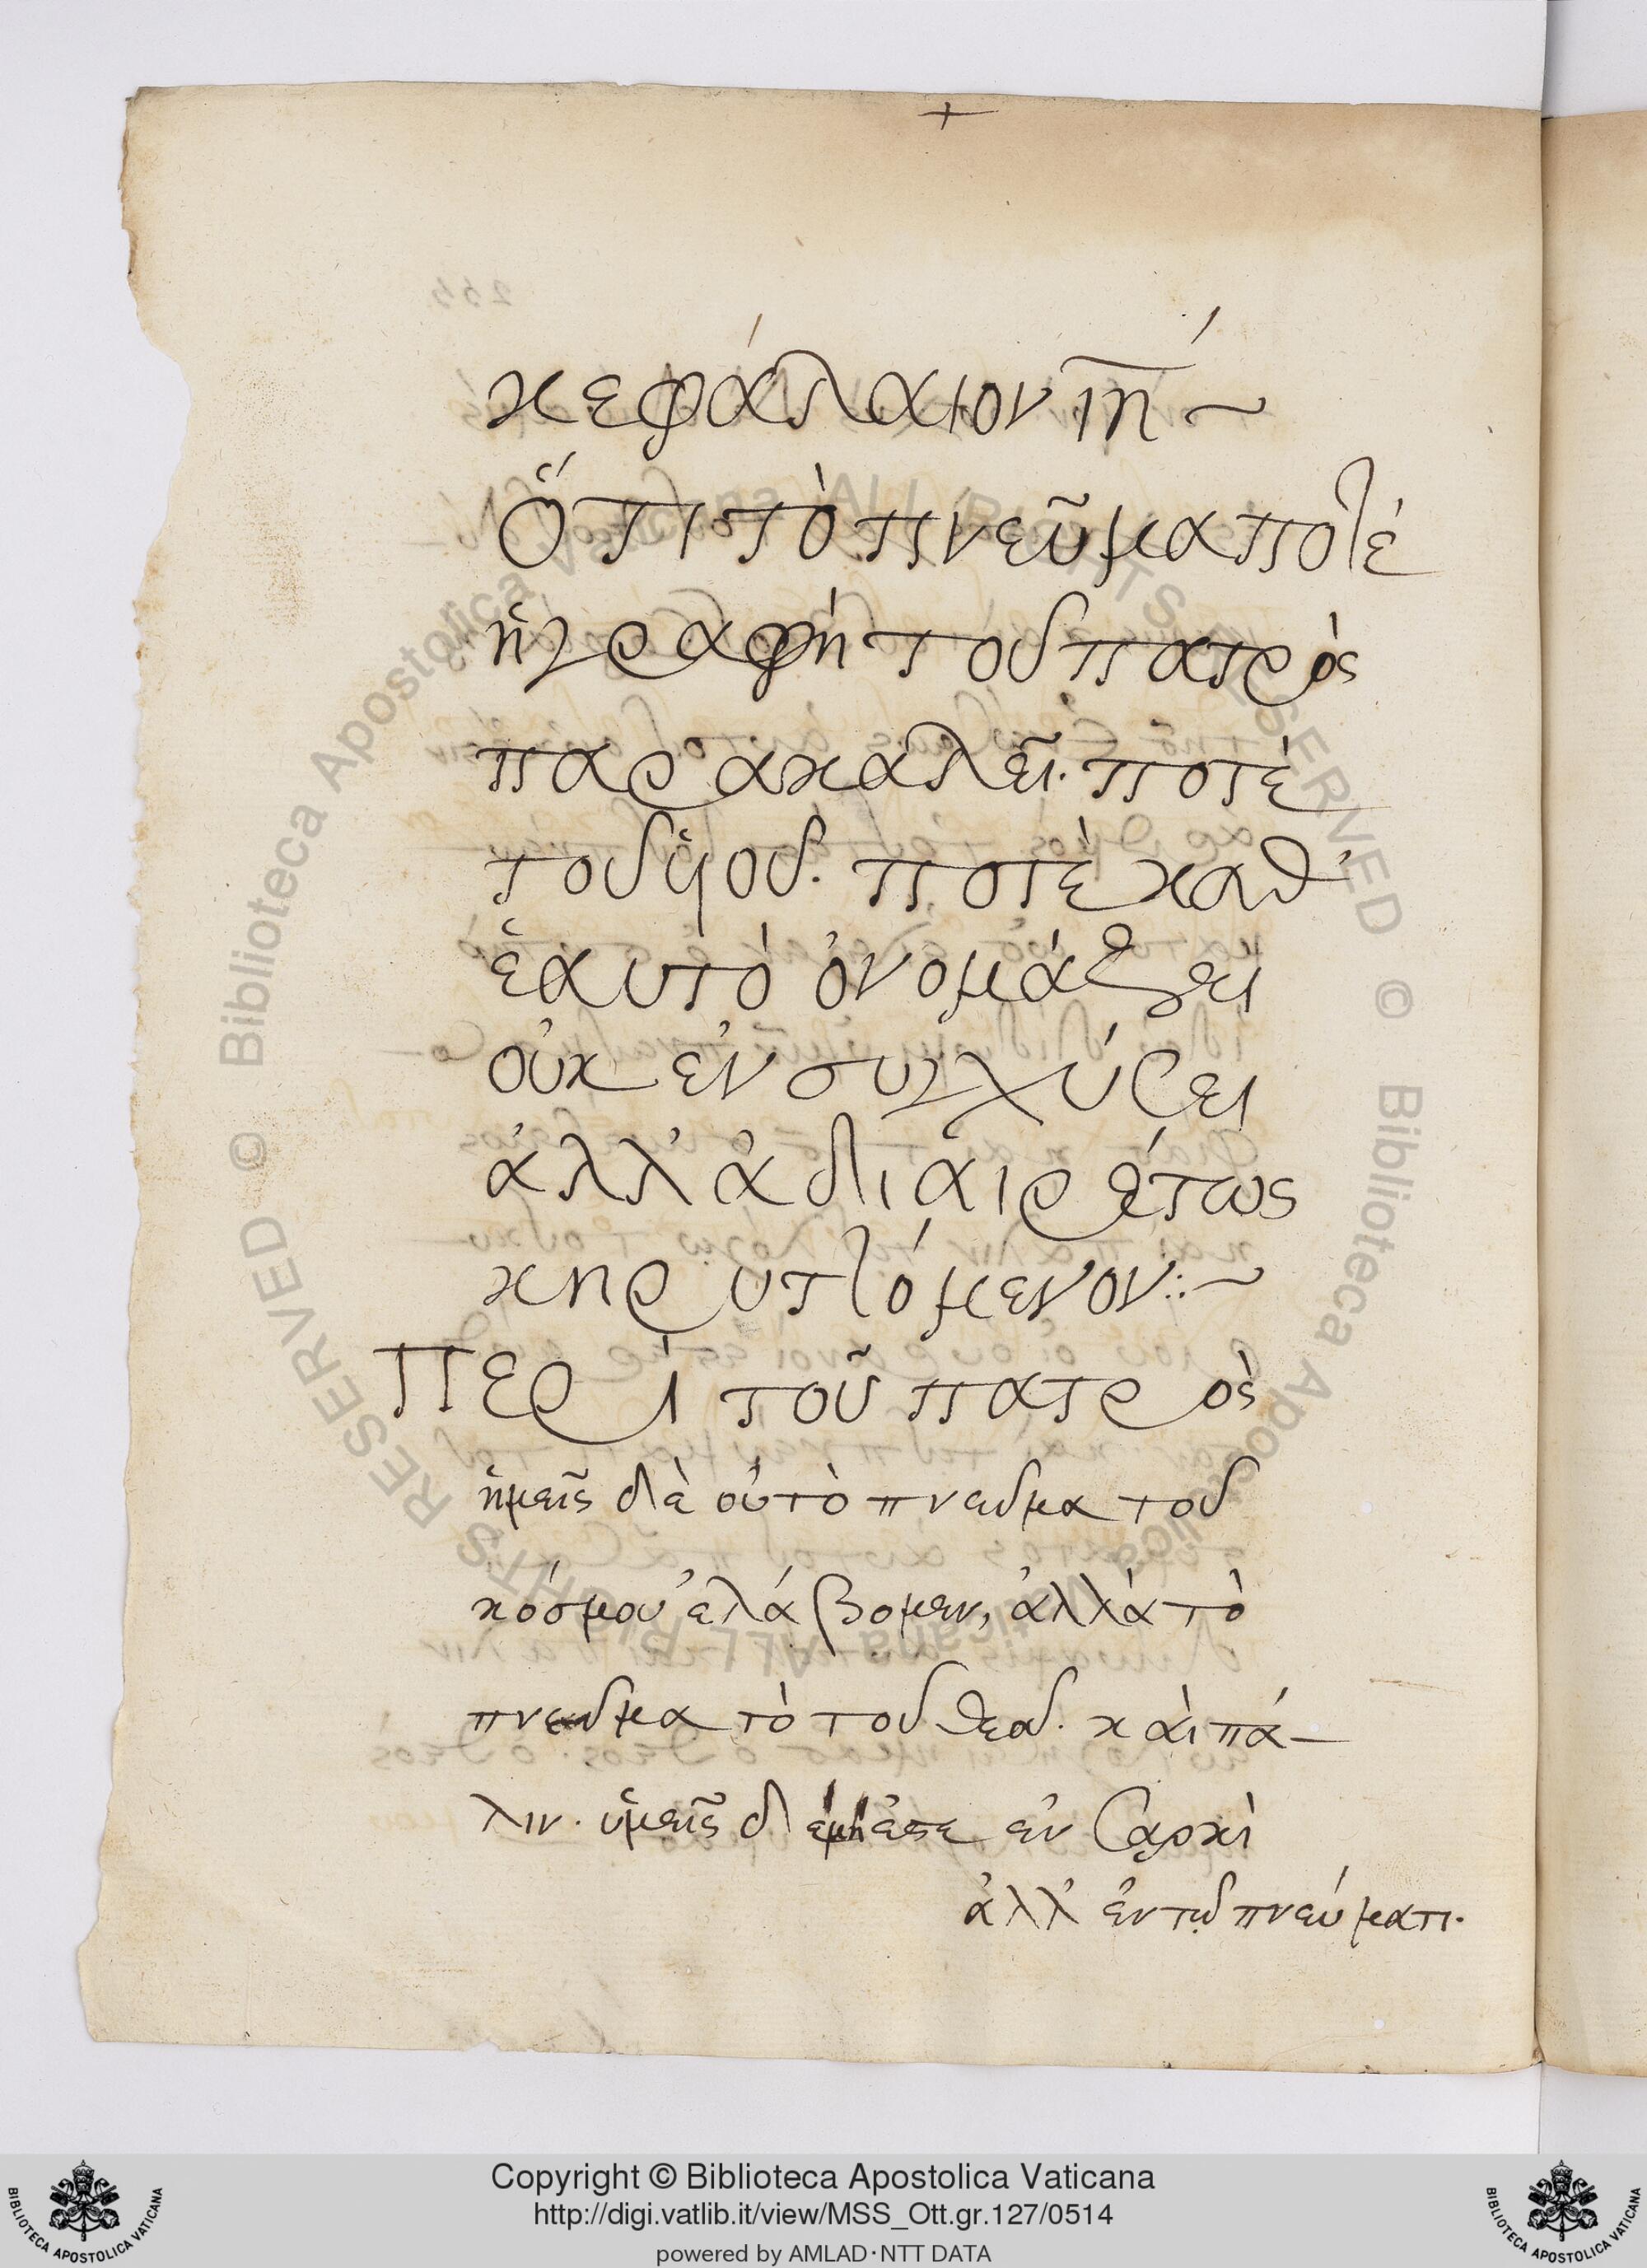 +
κεφάλαιον ιη´ ~
Ὅτι τὸ πνεῦμα ποτὲ
ἡ γραφὴ τοῦ πατρὸς
παρακαλεῖ. ποτὲ
τοῦ ὑιοῦ. ποτὲ καθ᾽
ἑαυτὸ ὀνομάζει
οὐκ ἐν συγχύσει
ἀλλ᾽ ἀδιαιρέτως
κηρυττόμενον :~
Περὶ τοῦ πατρὸς
ἡμεῖς δὲ οὐ τὸ πνεῦμα τοῦ
κόσμου ἐλάβομεν, ἀλλὰ τὸ
πνεῦμα τὸ τοῦ θεοῦ. καὶ πά-
λιν. ὑμεῖς δὲ μὴ ἐστὲ ἐν σαρκὶ
ἀλλ᾽ ἐν τῷ πνεύματι.
Copyright © Biblioteca Apostolica Vaticana
http://digi.vatlib.it/view/MSS_Ott.gr.127/0514
powered by AMLAD·NTT DATA
BIBLIOTECA APOSTOLICA VATICANA
BIBLIOTECA APOSTOLICA VATICANA
© Biblioteca Apostolica Vaticana ALL RIGHTS RESERVED © Biblioteca Apostolica Vaticana ALL RIGHTS RESERVED